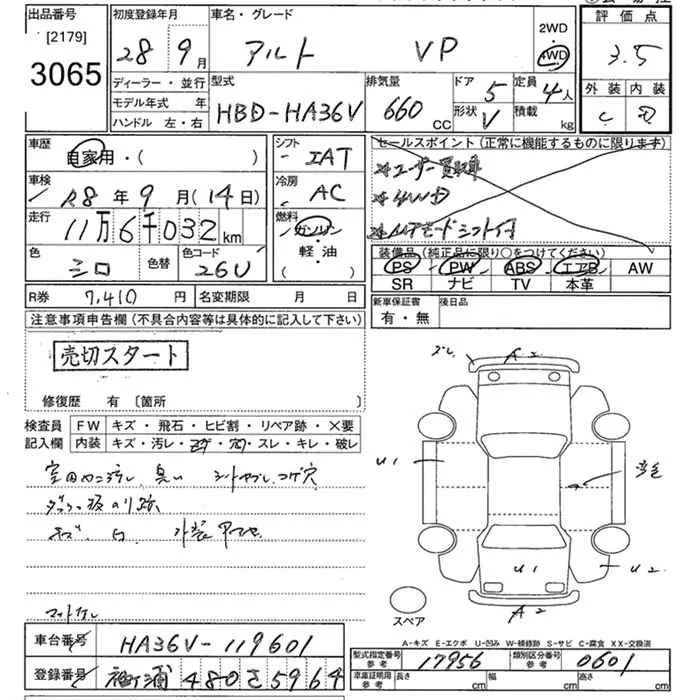 出品番号
[2179]
3065
初度登録年月
28 9月
車名・グレード
アルト VP
2WD
4WD
評価点
3.5
外装 内装
C D
ディーラー・並行
モデル年式 年
ハンドル 左・右
型式
HBD-HA36V
排気量
660 CC
ドア 5
形状 V
定員 4人
積載 kg
車歴
自家用・( )
車検
R8年9月(14日)
走行
11万6千032km
色
シロ
色替
色コード
26U
シフト
IAT
冷房
AC
燃料
ガソリン
軽・油
( )
セールスポイント(正常に機能するものに限ります)
ユーザー買取車
4WD
ATモードシフト付
装備品(純正品に限り○をつけてください)
PS PW ABS エアB AW
SR ナビ TV 本革
R券 7,410円
名変期限 月 日
新車保証書
有・無
後日品
注意事項申告欄(不具合内容等は具体的に記入して下さい)
売切スタート
修復歴 有 〔箇所
検査員
記入欄
FW キズ・飛石・ヒビ割・リペア跡・×要
内装 キズ・汚レ・コゲ・穴・スレ・キレ・破レ
コゲ穴
キズ
マットナシ
A2
U1
U1
U2
A2
スペア
A-キズ E-エクボ U-凹み W-補修跡 S-サビ C-腐食 XX-交換済
車台番号 HA36V-119601
登録番号 袖ヶ浦 480 さ 5964
型式指定番号
参考
17956
類別区分番号
参考
0601
車庫証明用
参考
長さ cm
幅 cm
高さ cm